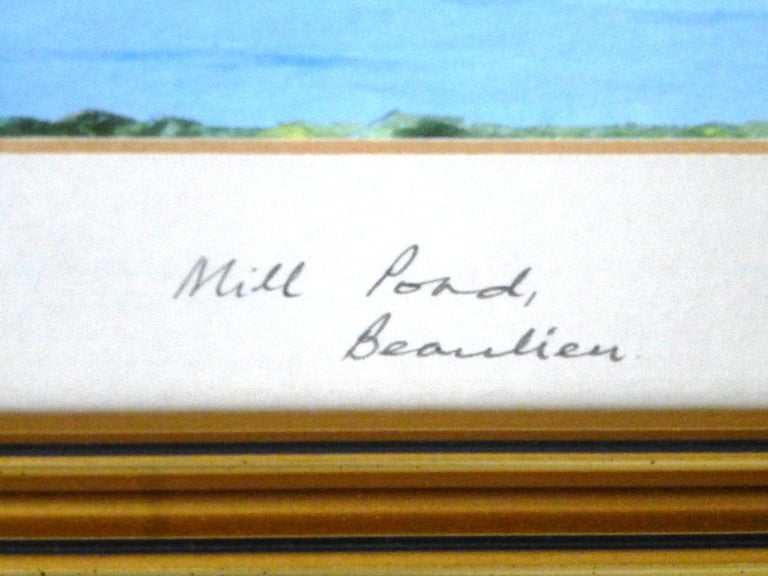 Mill Pond,
Beaulieu